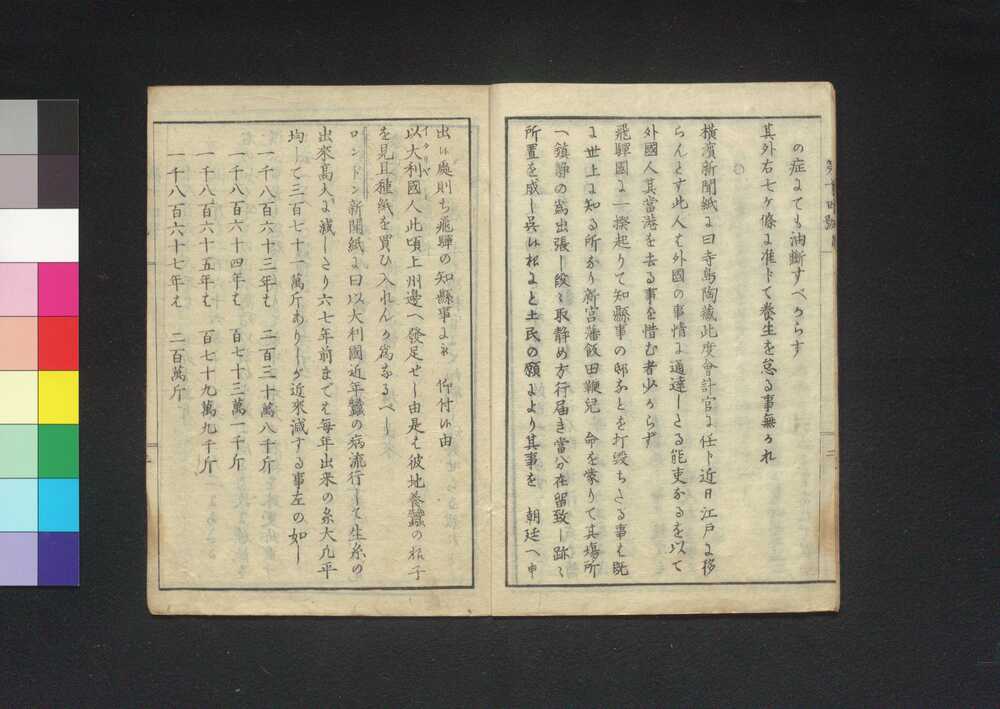 の症にても油斷すべからす
其外右七ケ條に准じて養生を怠る事無かれ
横濱新聞紙に曰寺島陶藏此度會計官に任ト近日江戸に移
らんとす此人も外國の事情に通達したる能吏なるを以て
外國人其當港を去る事を惜む者少からず
飛騨國に一揆起りて知縣事の邸なとを打毀ちたる事も既
に世上に知る所なり新宮藩飯田鞭兒 命を蒙りて其場所
へ鎮靜の爲出張し段々取静め方行届き當分在留致し跡々
所置を成し呉候様にと土民の願により其事を 朝廷へ申
出候處則ち飛騨の知縣事に被 仰付候由
以太利國人此頃上州邊へ發足せし由是も彼地養蠶の様子
イタリヤ
を見且種紙を買ひ入れんか爲なるべし
ロンドン新聞紙に曰以太利國近年蠶の病流行して生糸の
出來高大に減したり六七年前まても毎年出来の糸大凡平
均して三百七十一萬斤ありしが近來減する事左の如し
一千八百六十三年も 二百三十萬八千斤
一千八百六十四年も 百七十三萬一千斤
一千八百六十五年も 百七十九萬九千斤
一千八百六十七年も 二百萬斤